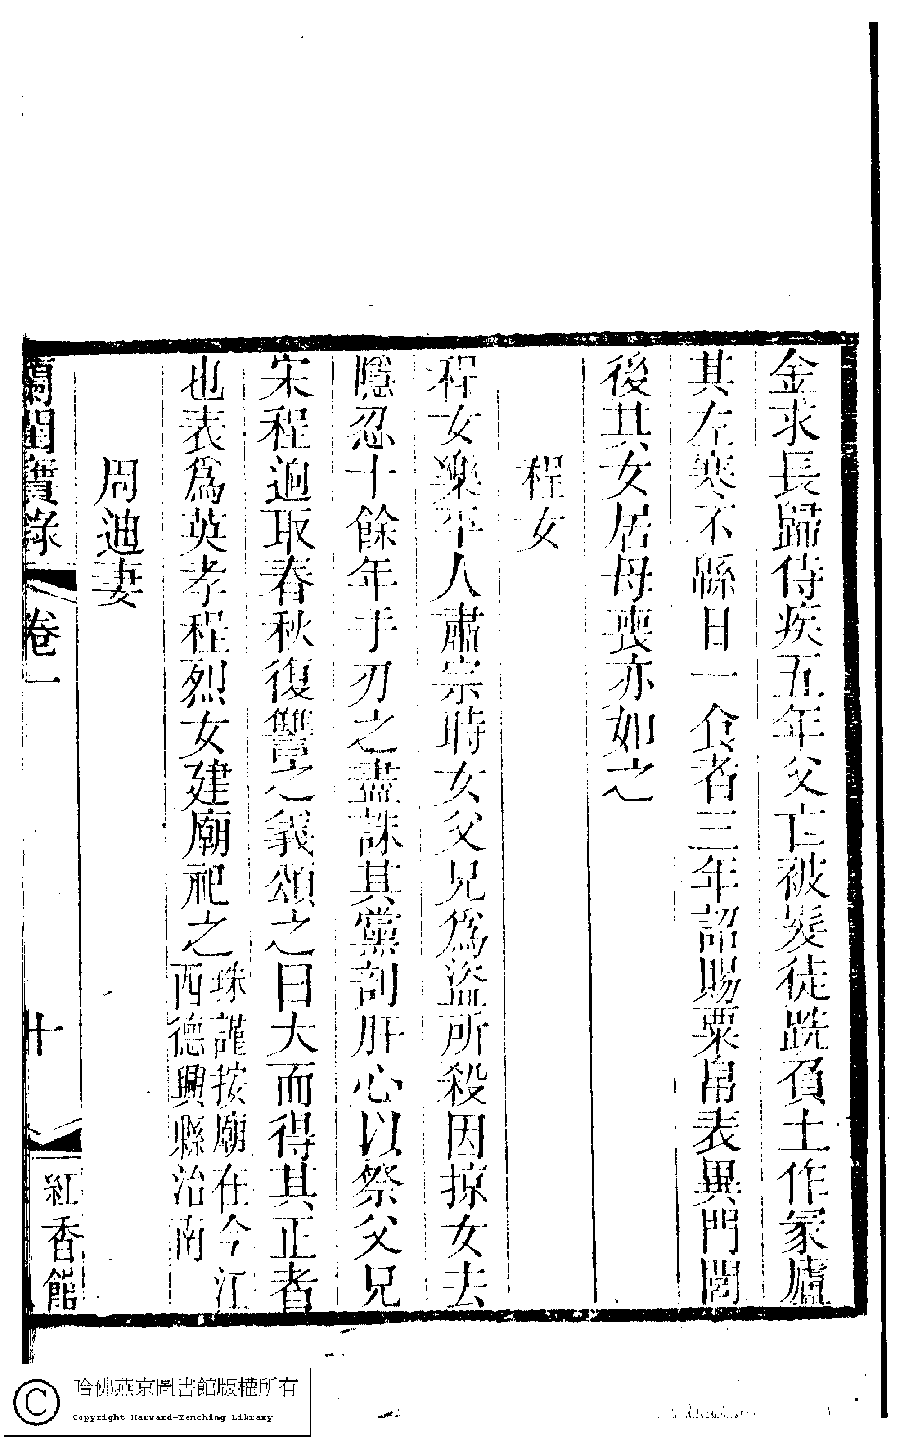 金求長歸侍疾五年父亡被髮徒跣負土作冢廬
其左寒不緜日一食者三年詔賜粟帛表異門閭
後其女居母喪亦如之
程女
程女樂平人肅宗時女父兄爲盜所殺因掠女去
隱忍十餘年手刃之盡誅其黨剖肝心以祭父兄
宋程迥取春秋復讐之義頌之曰大而得其正者
也表爲英孝程烈女建廟祀之珠謹按廟在今江
西德興縣治南
周迪妻
蘭閨寶錄 卷一 十 紅香館
哈佛燕京圖書館版權所有
Copyright Harvard-Yenching Library